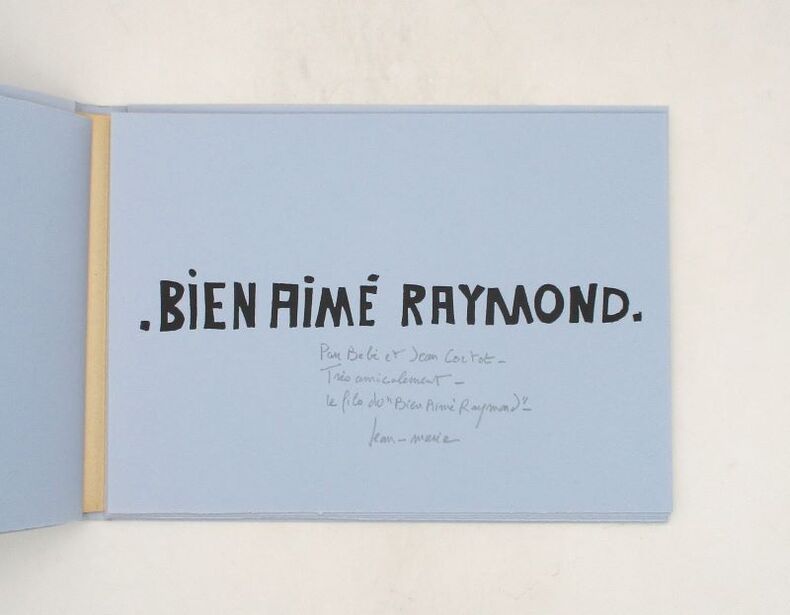 .BiEN AiMÉ RAYMOND.
Pour Bébé et Jean Cortot _
Très amicalement _
le fils du "Bien Aimé Raymond" _
Jean_marie